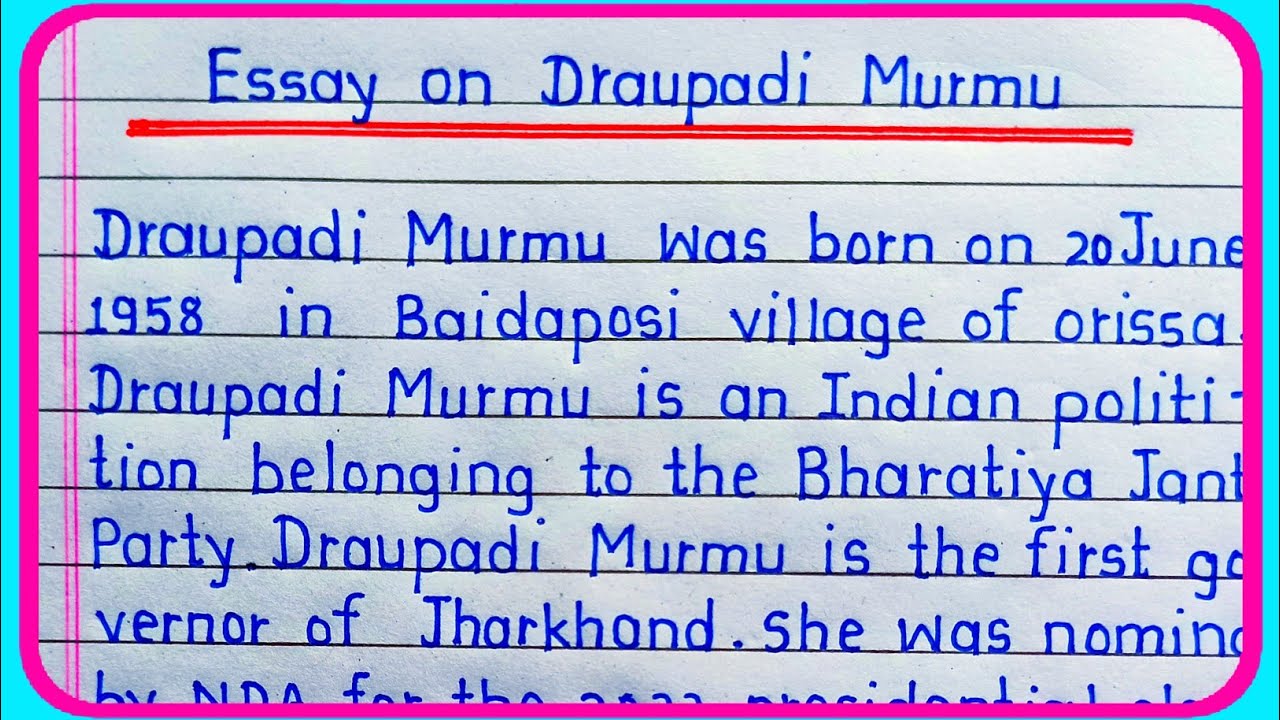 Essay on Draupadi Murmu
Draupadi Murmu was born on 20 June
1958 in Baidaposi village of orissa.
Draupadi Murmu is an Indian politi-
tion belonging to the Bharatiya Jant
Party. Draupadi Murmu is the first go
vernor of Jharkhand. She was nomina
by NDA for the 2022 presidential ele